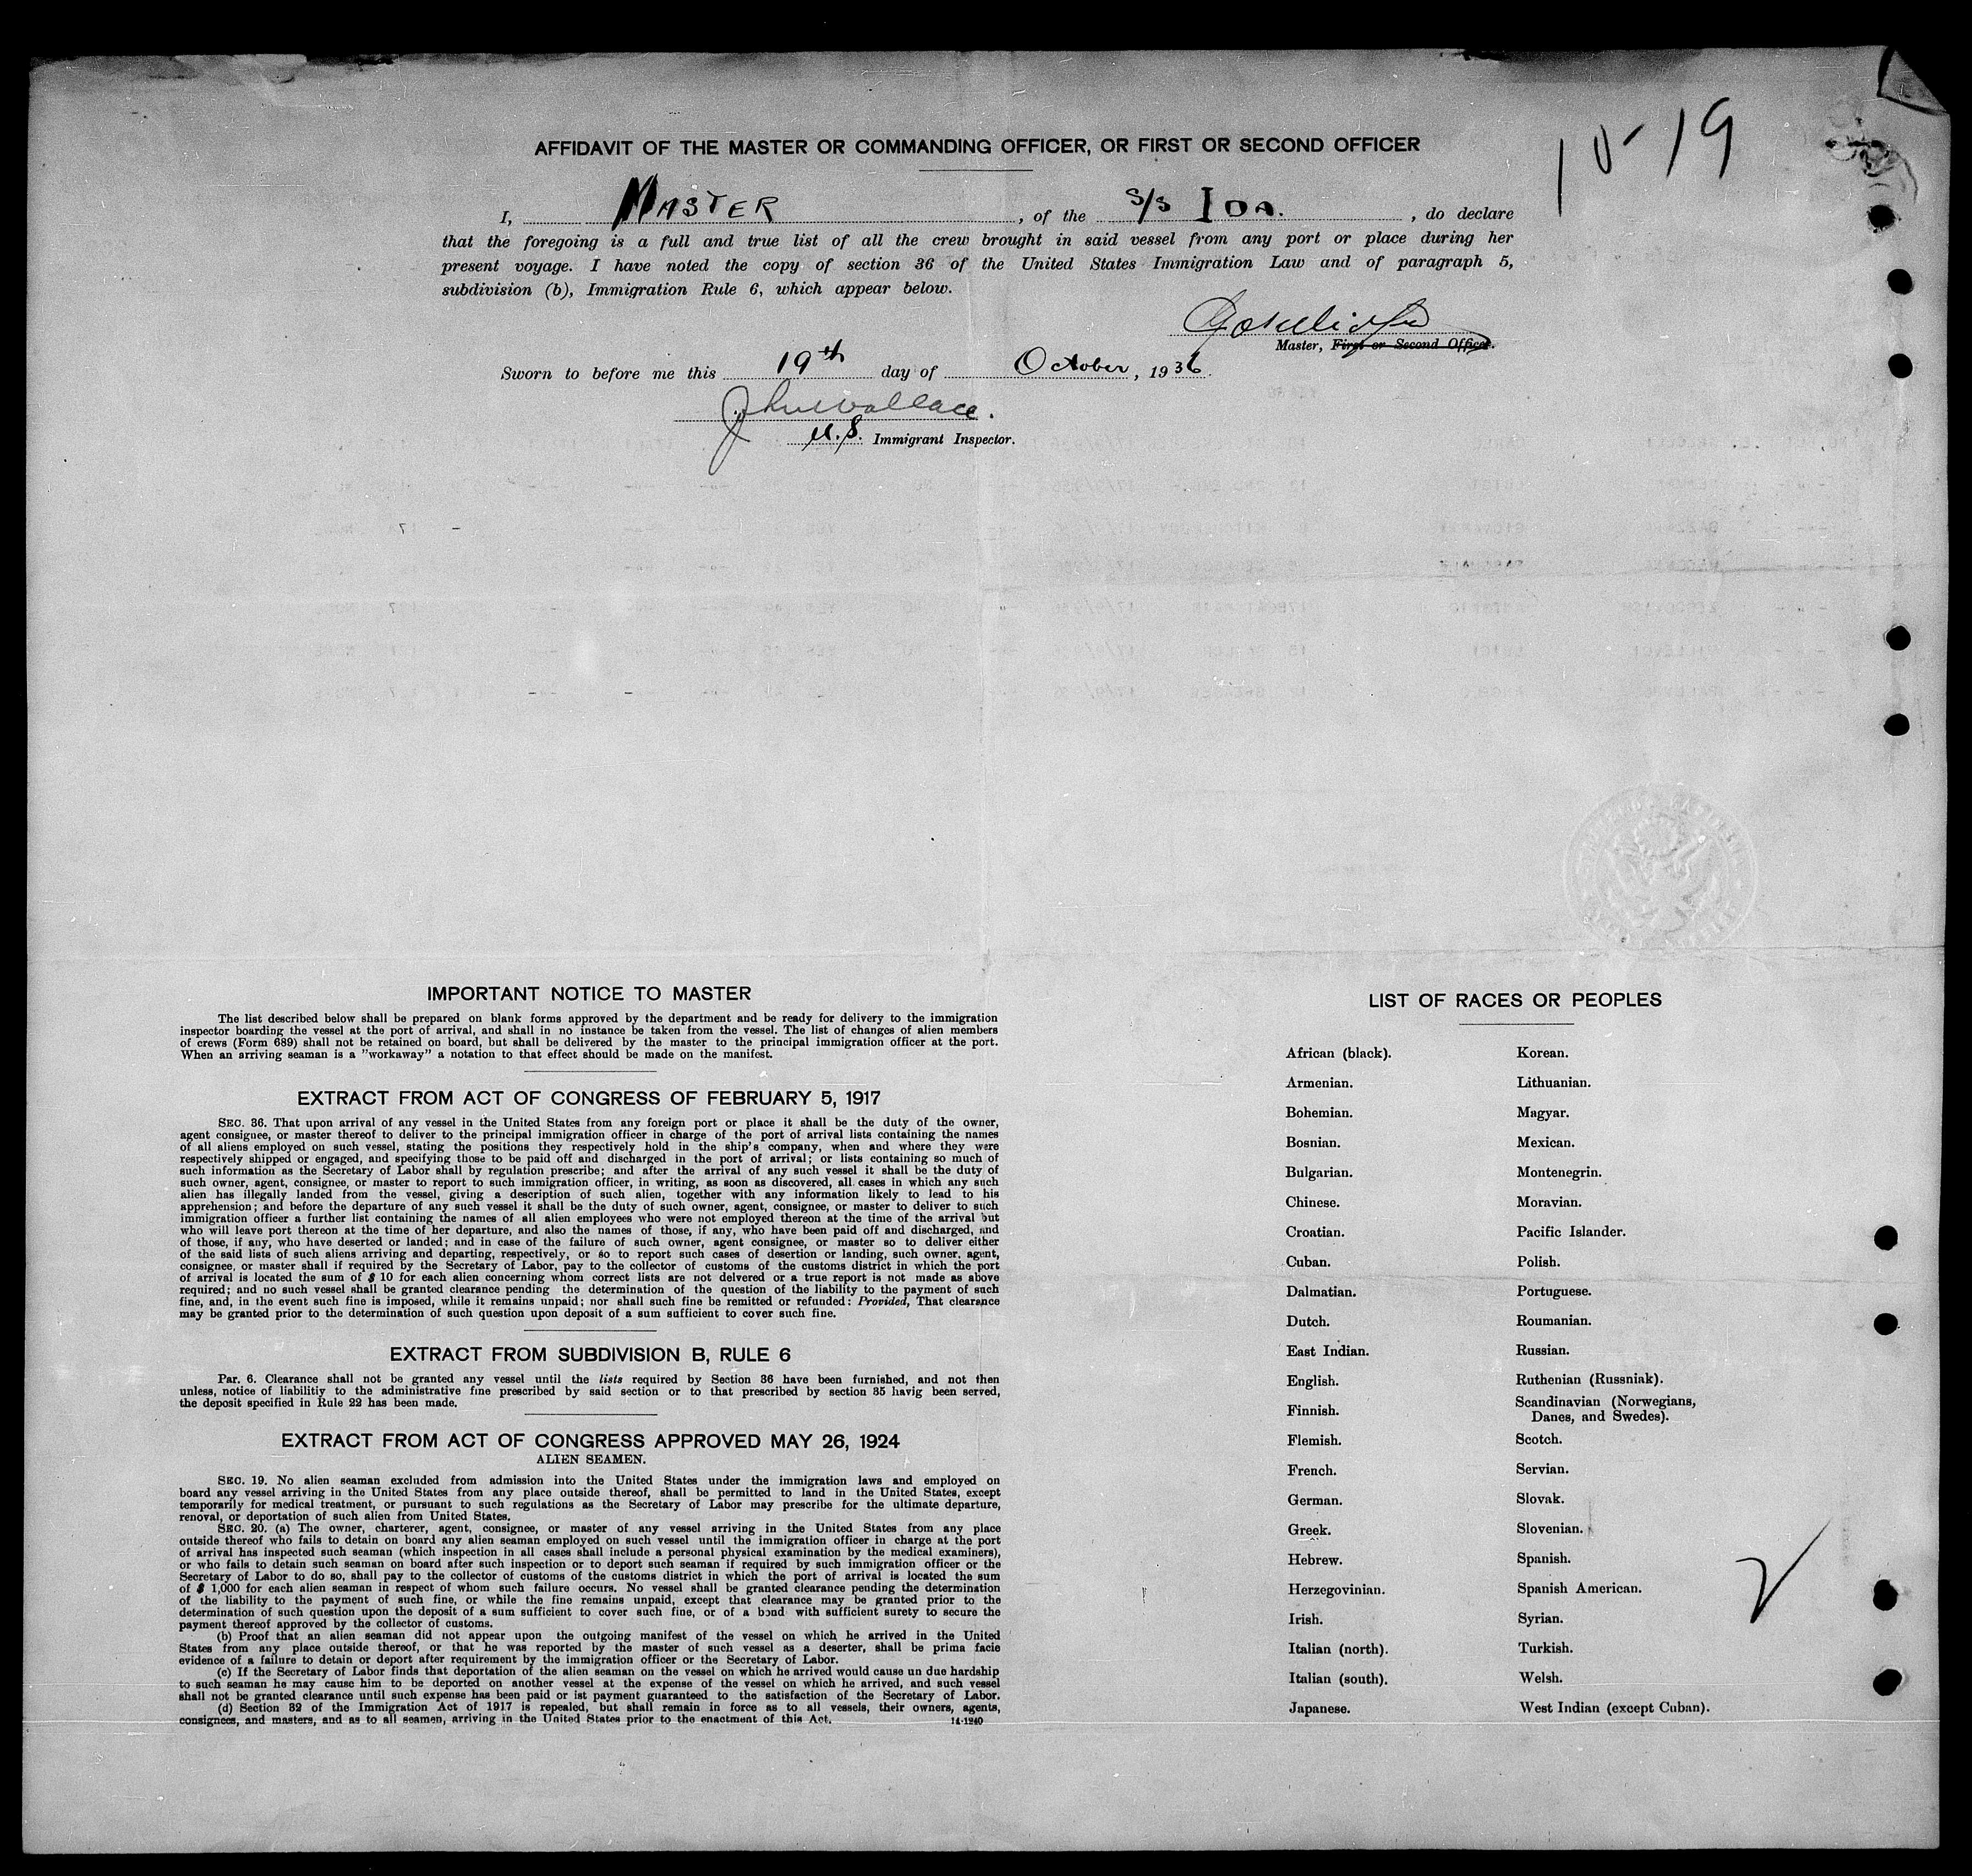 10-19
AFFIDAVIT OF THE MASTER OR COMMANDING OFFICER, OR FIRST OR SECOND OFFICER
I, MASTER, of the S/S IDA., do declare
that the foregoing is a full and true list of all the crew brought in said vessel from any port or place during her
present voyage. I have noted the copy of section 36 of the United States Immigration Law and of paragraph 5,
subdivision (b), Immigration Rule 6, which appear below.
Master, First or Second Officer.
Sworn to before me this 19th day of October, 1936.
John Wallace.
U.S. Immigrant Inspector.
IMPORTANT NOTICE TO MASTER
The list described below shall be prepared on blank forms approved by the department and be ready for delivery to the immigration
inspector boarding the vessel at the port of arrival, and shall in no instance be taken from the vessel. The list of changes of alien members
of crews (Form 689) shall not be retained on board, but shall be delivered by the master to the principal immigration officer at the port.
When an arriving seaman is a "workaway" a notation to that effect should be made on the manifest.
EXTRACT FROM ACT OF CONGRESS OF FEBRUARY 5, 1917
SEC. 36. That upon arrival of any vessel in the United States from any foreign port or place it shall be the duty of the owner,
agent consignee, or master thereof to deliver to the principal immigration officer in charge of the port of arrival lists containing the names
of all aliens employed on such vessel, stating the positions they respectively hold in the ship's company, when and where they were
respectively shipped or engaged, and specifying those to be paid off and discharged in the port of arrival; or lists containing so much of
such information as the Secretary of Labor shall by regulation prescribe; and after the arrival of any such vessel it shall be the duty of
such owner, agent, consignee, or master to report to such immigration officer, in writing, as soon as discovered, all cases in which any such
alien has illegally landed from the vessel, giving a description of such alien, together with any information likely to lead to his
apprehension; and before the departure of any such vessel it shall be the duty of such owner, agent, consignee, or master to deliver to such
immigration officer a further list containing the names of all alien employees who were not employed thereon at the time of the arrival but
who will leave port thereon at the time of her departure, and also the names of those, if any, who have been paid off and discharged, and
of those, if any, who have deserted or landed; and in case of the failure of such owner, agent consignee, or master so to deliver either
of the said lists of such aliens arriving and departing, respectively, or so to report such cases of desertion or landing, such owner, agent,
consignee, or master shall if required by the Secretary of Labor, pay to the collector of customs of the customs district in which the port
of arrival is located the sum of $ 10 for each alien concerning whom correct lists are not delvered or a true report is not made as above
required; and no such vessel shall be granted clearance pending the determination of the question of the liability to the payment of such
fine, and, in the event such fine is imposed, while it remains unpaid; nor shall such fine be remitted or refunded: Provided, That clearance
may be granted prior to the determination of such question upon deposit of a sum sufficient to cover such fine.
EXTRACT FROM SUBDIVISION B, RULE 6
Par. 6. Clearance shall not be granted any vessel until the lists required by Section 36 have been furnished, and not then
unless, notice of liabilitiy to the administrative fine prescribed by said section or to that prescribed by section 35 havig been served,
the deposit specified in Rule 22 has been made.
EXTRACT FROM ACT OF CONGRESS APPROVED MAY 26, 1924
ALIEN SEAMEN.
SEC. 19. No alien seaman excluded from admission into the United States under the immigration laws and employed on
board any vessel arriving in the United States from any place outside thereof, shall be permitted to land in the United States, except
temporarily for medical treatment, or pursuant to such regulations as the Secretary of Labor may prescribe for the ultimate departure,
renoval, or deportation of such alien from United States.
SEC. 20. (a) The owner, charterer, agent, consignee, or master of any vessel arriving in the United States from any place
outside thereof who fails to detain on board any alien seaman employed on such vessel until the immigration officer in charge at the port
of arrival has inspected such seaman (which inspection in all cases shall include a personal physical examination by the medical examiners),
or who fails to detain such seaman on board after such inspection or to deport such seaman if required by such immigration officer or the
Secretary of Labor to do so, shall pay to the collector of customs of the customs district in which the port of arrival is located the sum
of $ 1,000 for each alien seaman in respect of whom such failure occurs. No vessel shall be granted clearance pending the determination
of the liability to the payment of such fine, or while the fine remains unpaid, except that clearance may be granted prior to the
determination of such question upon the deposit of a sum sufficient to cover such fine, or of a bond with sufficient surety to secure the
payment thereof approved by the collector of customs.
(b) Proof that an alien seaman did not appear upon the outgoing manifest of the vessel on which he arrived in the United
States from any place outside thereof, or that he was reported by the master of such vessel as a deserter, shall be prima facie
evidence of a failure to detain or deport after requirement by the immigration officer or the Secretary of Labor.
(c) If the Secretary of Labor finds that deportation of the alien seaman on the vessel on which he arrived would cause un due hardship
to such seaman he may cause him to be deported on another vessel at the expense of the vessel on which he arrived, and such vessel
shall not be granted clearance until such expense has been paid or ist payment guaranteed to the satisfaction of the Secretary of Labor.
(d) Section 32 of the Immigration Act of 1917 is repealed, but shall remain in force as to all vessels, their owners, agents,
consignees, and masters, and as to all seamen, arriving in the United States prior to the enactment of this Act.
14-1240
LIST OF RACES OR PEOPLES
African (black).
Armenian.
Bohemian.
Bosnian.
Bulgarian.
Chinese.
Croatian.
Cuban.
Dalmatian.
Dutch.
East Indian.
English.
Finnish.
Flemish.
French.
German.
Greek.
Hebrew.
Herzegovinian.
Irish.
Italian (north).
Italian (south).
Japanese.
Korean.
Lithuanian.
Magyar.
Mexican.
Montenegrin.
Moravian.
Pacific Islander.
Polish.
Portuguese.
Roumanian.
Russian.
Ruthenian (Russniak).
Scandinavian (Norwegians,
Danes, and Swedes).
Scotch.
Servian.
Slovak.
Slovenian.
Spanish.
Spanish American.
Syrian.
Turkish.
Welsh.
West Indian (except Cuban).